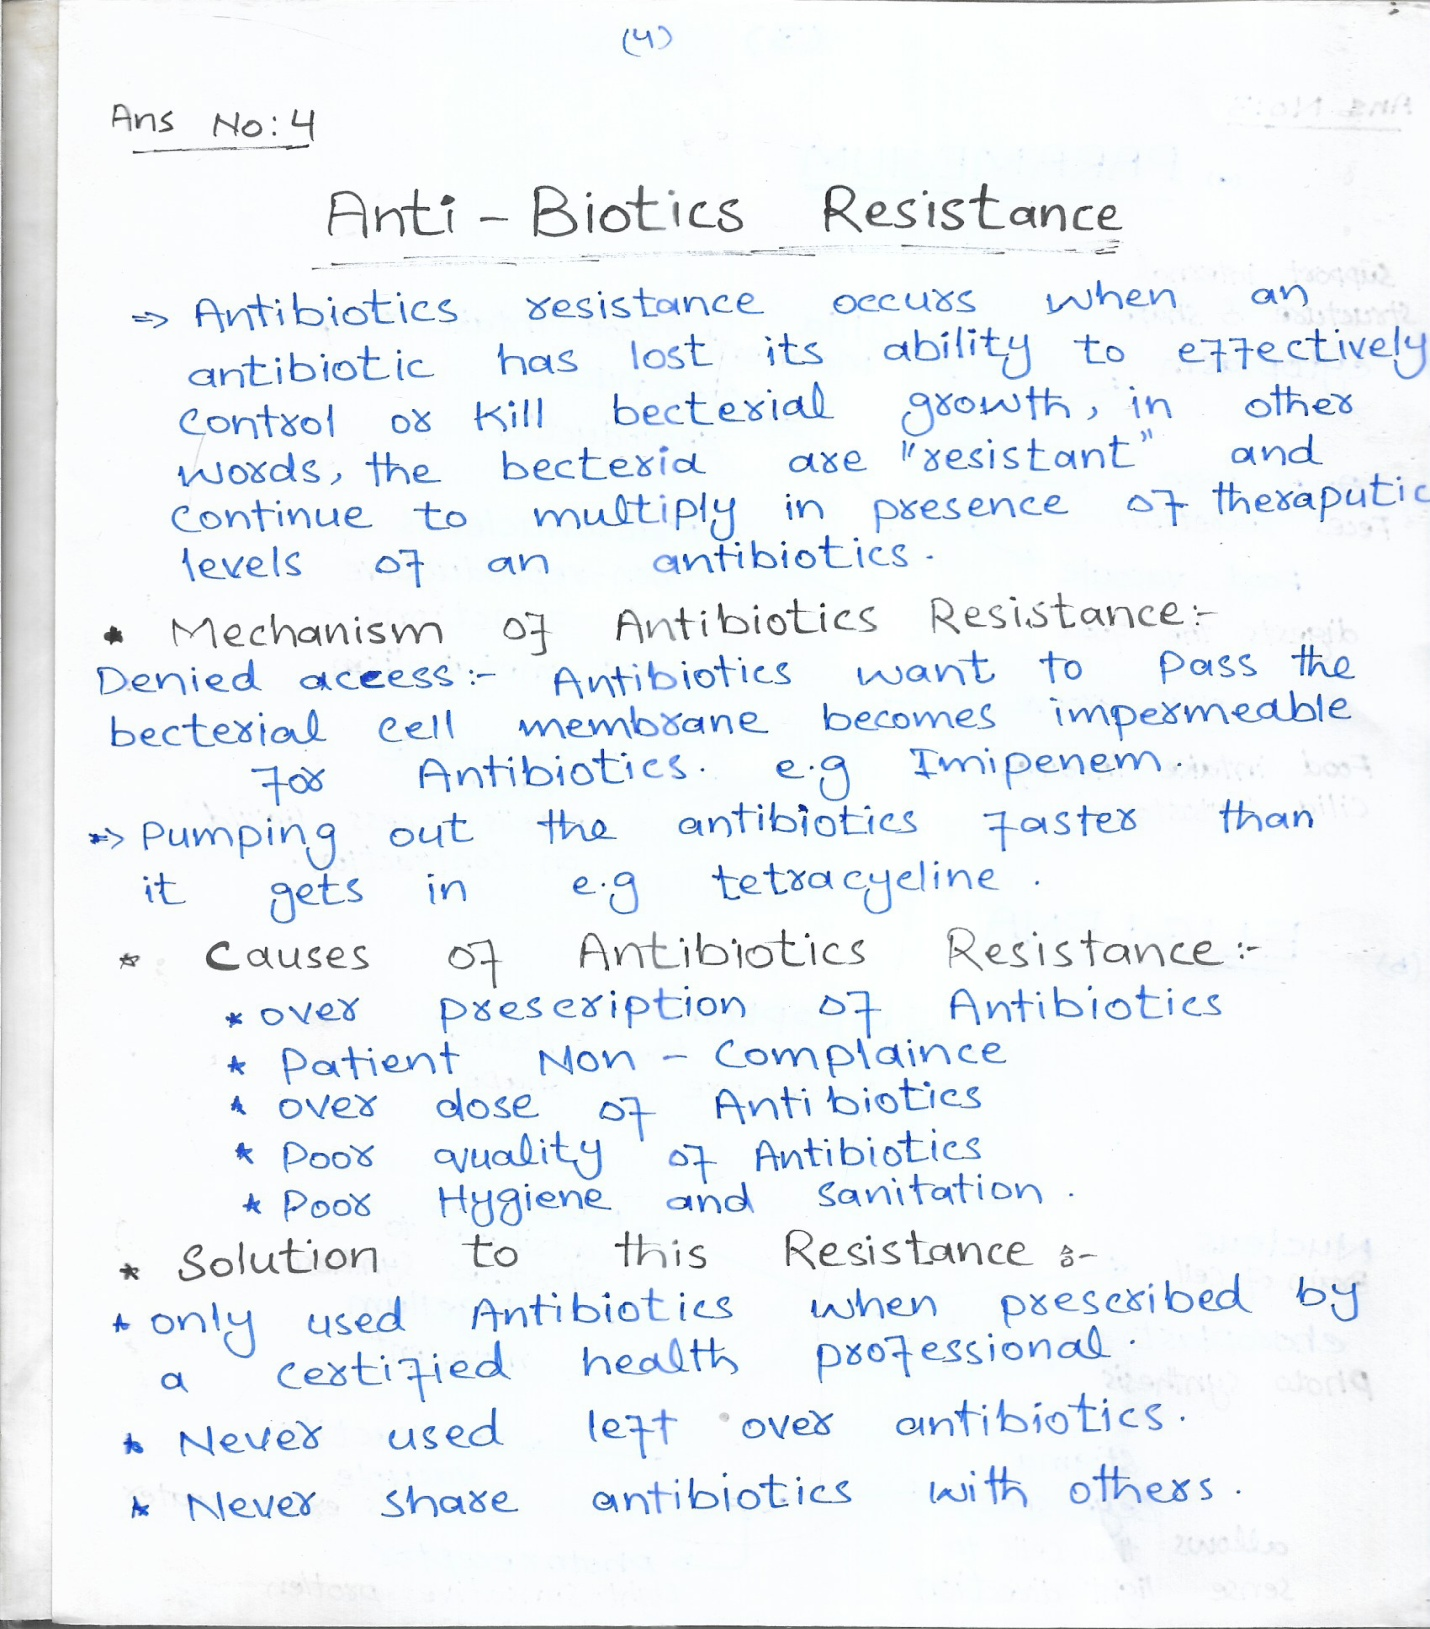 (4)
Ans No:4
Anti - Biotics Resistance
=> Antibiotics resistance occurs when an
antibiotic has lost its ability to effectively
control or kill becterial growth, in other
words, the becteria are "resistant" and
continue to multiply in presence of theraputic
levels of an antibiotics.
* Mechanism of Antibiotics Resistance:-
Denied access:- Antibiotics want to pass the
becterial cell membrane becomes impermeable
for Antibiotics. e.g Imipenem.
=> Pumping out the antibiotics faster than
it gets in e.g tetracycline.
* Causes of Antibiotics Resistance:-
* over prescription of Antibiotics
* Patient Non - Complaince
* over dose of Antibiotics
* Poor quality of Antibiotics
* Poor Hygiene and sanitation.
* Solution to this Resistance :-
* only used Antibiotics when prescribed by
a certified health professional.
* Never used left over antibiotics.
* Never share antibiotics with others.